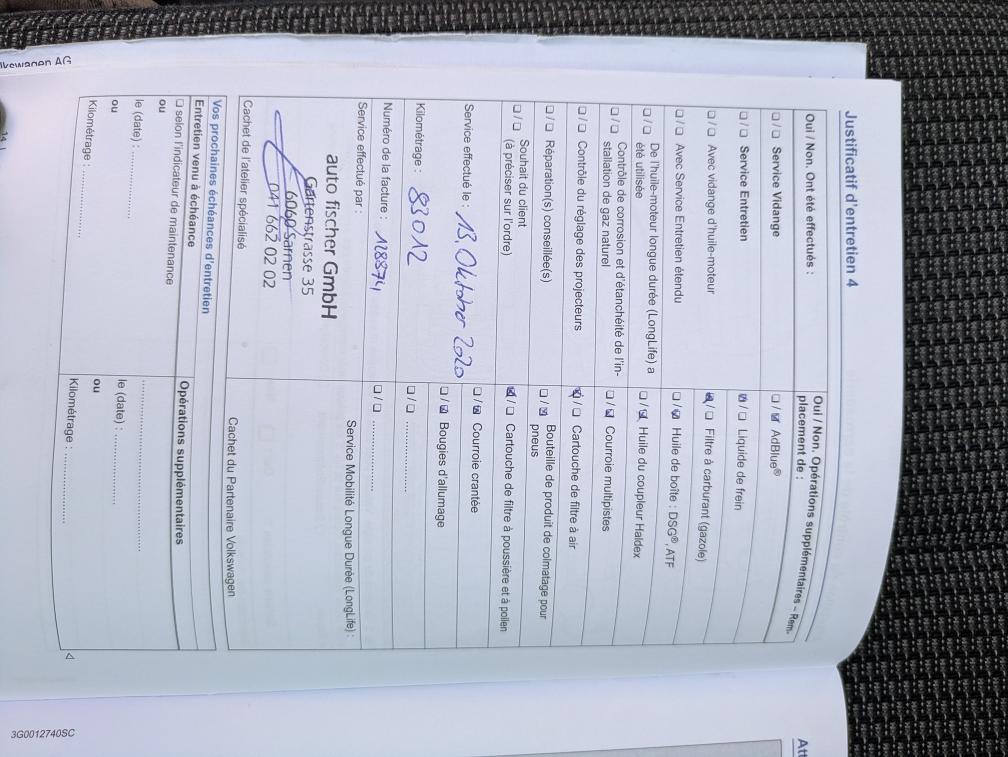 lkswagen AG
Justificatif d'entretien 4
Oui / Non. Ont été effectués :
☐/☐ Service Vidange
☐/☐ Service Entretien
☐/☐ Avec vidange d'huile-moteur
☐/☐ Avec Service Entretien étendu
☐/☐ De l'huile-moteur longue durée (LongLife) a
été utilisée
☐/☐ Contrôle de corrosion et d'étanchéité de l'in-
stallation de gaz naturel
☐/☐ Contrôle du réglage des projecteurs
☐/☐ Réparation(s) conseillée(s)
☐/☐ Souhait du client
(à préciser sur l'ordre)
Service effectué le : 13. Oktober 2020
Kilométrage : 83012
Numéro de la facture : 128874
Service effectué par :
auto fischer GmbH
Gartenstrasse 35
6060 Sarnen
041 662 02 02
Cachet de l'atelier spécialisé
Oui / Non. Opérations supplémentaires – Rem-
placement de :
☐/☒ AdBlue®
☒/☐ Liquide de frein
☒/☐ Filtre à carburant (gazole)
☐/☒ Huile de boîte : DSG®, ATF
☐/☒ Huile du coupleur Haldex
☐/☒ Courroie multipistes
☒/☐ Cartouche de filtre à air
☐/☒ Bouteille de produit de colmatage pour
pneus
☒/☐ Cartouche de filtre à poussière et à pollen
☐/☒ Courroie crantée
☐/☒ Bougies d'allumage
☐/☐ ....................
☐/☐ ....................
Service Mobilité Longue Durée (LongLife) :
Cachet du Partenaire Volkswagen
Vos prochaines échéances d'entretien
Entretien venu à échéance
☐ selon l'indicateur de maintenance
ou
le (date) : ....................
ou
Kilométrage : ....................
Opérations supplémentaires
........................................
le (date) : ....................
ou
Kilométrage : ....................
3G0012740SC
Att